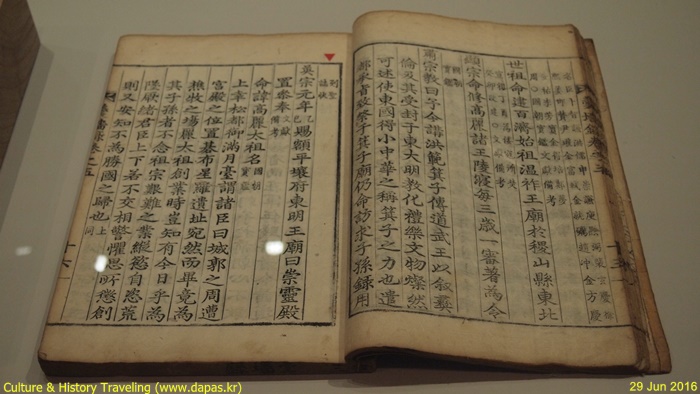 世祖命建百濟始祖溫祚王廟於稷山縣東北
顯宗命修高麗諸王陵寢每三歲一審著為令
國朝寶鑑
肅宗教曰予今講洪範箕子傳道武王以叙彝
倫及其受封于東大明教化禮樂文物燦然
可述使東國得小中華之稱箕子之力也遣
都承旨致祭于箕子廟仍命訪求子孫錄用
列聖誌狀
英宗元年乙巳賜額平壤府東明王廟曰崇靈殿
置參奉文獻備考
命諱高麗太祖名國朝寶鑑
上幸松都御滿月臺謂諸臣曰城郭之周遭
宮殿之位置碁布星羅遺址宛然而畢竟為
樵牧之場麗太祖創業時豈知有今日乎為
其子孫者不念祖宗艱難之業縱慾自恣荒
墜厥緒君臣上下若不交相警惧思所懲創
則又安知不為勝國之歸也上同
Culture & History Traveling (www.dapas.kr)
29 Jun 2016